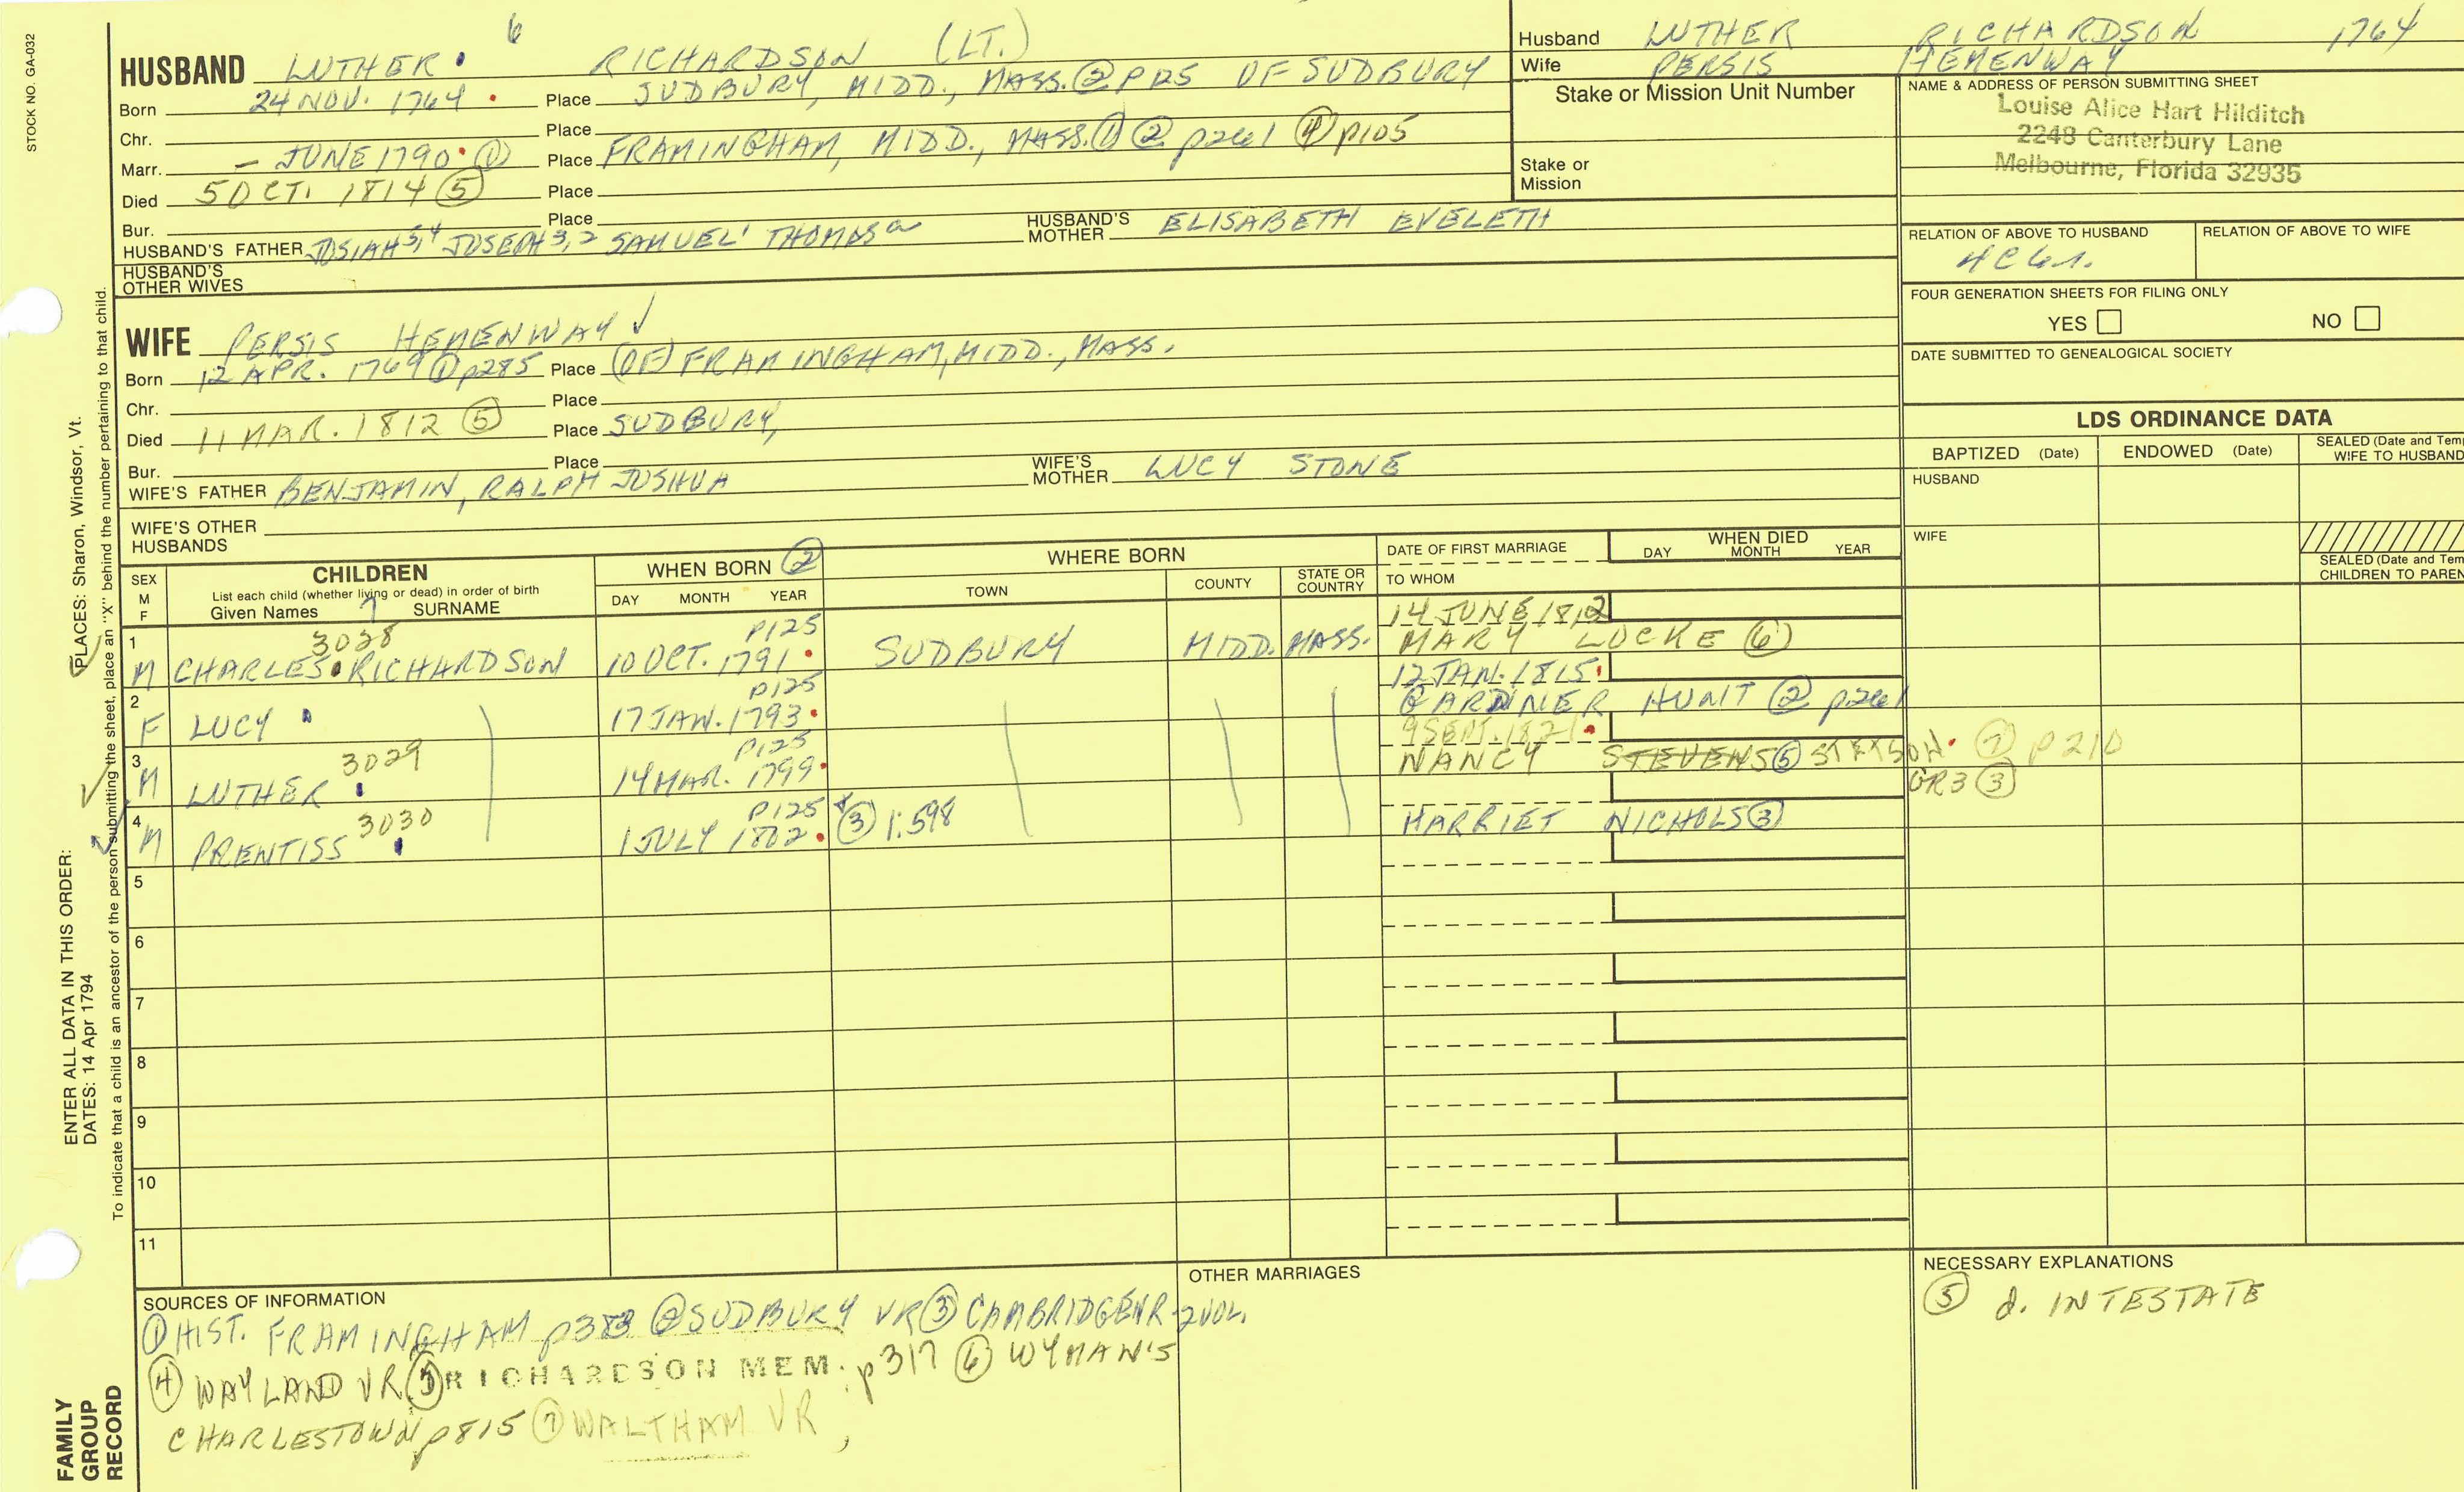 STOCK NO. GA-032
HUSBAND LUTHER 6 RICHARDSON (LT.)
Born 24 NOV. 1764 Place SUDBURY, MIDD., MASS. ② P125 OF SUDBURY
Chr. Place
Marr. – JUNE 1790 ① Place FRAMINGHAM, MIDD., MASS. ① ② p261 ④ p105
Died 5 OCT. 1814 ⑤ Place
Bur. Place
HUSBAND'S FATHER JOSIAH 5,4 JOSEPH 3,2 SAMUEL 1 THOMAS a HUSBAND'S MOTHER ELISABETH EVELETH
HUSBAND'S OTHER WIVES
Husband LUTHER RICHARDSON 1764
Wife PERSIS HEMENWAY
Stake or Mission Unit Number
Stake or Mission
NAME & ADDRESS OF PERSON SUBMITTING SHEET
Louise Alice Hart Hilditch
2248 Canterbury Lane
Melbourne, Florida 32935
RELATION OF ABOVE TO HUSBAND RELATION OF ABOVE TO WIFE
FOUR GENERATION SHEETS FOR FILING ONLY
YES NO
DATE SUBMITTED TO GENEALOGICAL SOCIETY
WIFE PERSIS HEMENWAY ✓
Born 12 APR. 1769 ① p285 Place (OF) FRAMINGHAM, MIDD., MASS.
Chr. Place
Died 11 MAR. 1812 ⑤ Place SUDBURY,
Bur. Place
WIFE'S FATHER BENJAMIN, RALPH JOSHUA WIFE'S MOTHER LUCY STONE
WIFE'S OTHER HUSBANDS
LDS ORDINANCE DATA
BAPTIZED (Date) ENDOWED (Date) SEALED (Date and Tem
WIFE TO HUSBAND
HUSBAND
WIFE
SEALED (Date and Tem
CHILDREN TO PAREN
SEX M F
CHILDREN
List each child (whether living or dead) in order of birth
Given Names 7 SURNAME
WHEN BORN ②
DAY MONTH YEAR
WHERE BORN
TOWN COUNTY STATE OR COUNTRY
DATE OF FIRST MARRIAGE
TO WHOM
WHEN DIED
DAY MONTH YEAR
1 3028 P125 14 JUNE 1812
M CHARLES RICHARDSON 10 OCT. 1791 SUDBURY MIDD. MASS. MARY LOCKE ⑥
2 P125 12 JAN. 1815
F LUCY 17 JAN. 1793 GARDNER HUNT ② p261
3 3029 P125 9 SEPT. 1821
M LUTHER 14 MAR. 1799 NANCY STEVENS ⑤ STETSON ⑦ p210
GR3 ③
4 3030 P125
M PRENTISS 1 JULY 1802 ③ 1:598 HARRIET NICHOLS ③
5
6
7
8
9
10
11
SOURCES OF INFORMATION
① HIST. FRAMINGHAM p383 ② SUDBURY VR ③ CAMBRIDGE VR - 2 VOL.
④ WAYLAND VR ⑤ RICHARDSON MEM. p317 ⑥ WYMAN'S
CHARLESTOWN p815 ⑦ WALTHAM VR,
OTHER MARRIAGES
NECESSARY EXPLANATIONS
⑤ d. INTESTATE
ENTER ALL DATA IN THIS ORDER:
DATES: 14 Apr 1794
PLACES: Sharon, Windsor, Vt.
To indicate that a child is an ancestor of the person submitting the sheet, place an "X" behind the number pertaining to that child.
FAMILY
GROUP
RECORD